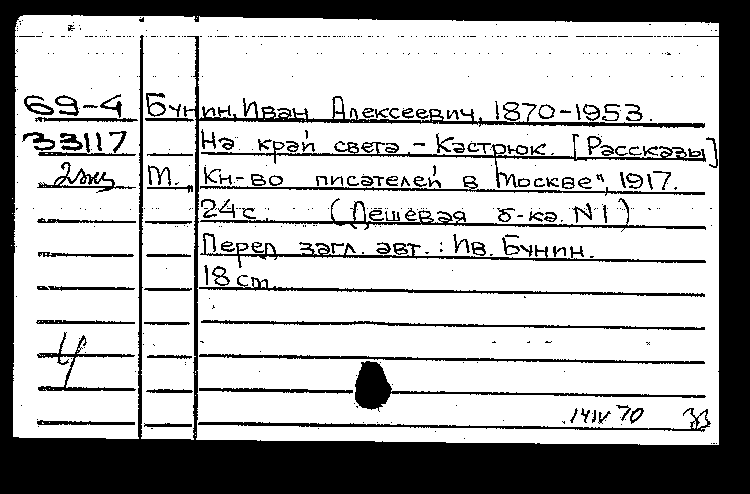 69-4 Бунин, Иван Алексеевич, 1870-1953.
33117 На край света. - Кастрюк. [Рассказы]
2экз М., „Кн-во писателей в Москве", 1917.
24 с. (Дешевая б-ка. N1)
Перед загл. авт.: Ив. Бунин.
18 cm.
14 IV 70